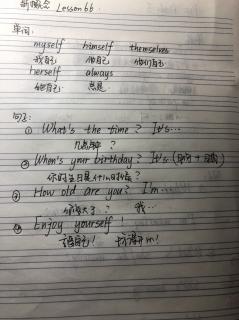 新概念 Lesson 66
单词:
myself himself themselves
我自己 他自己 他们自己
herself always
她自己 总是
句子:
① What's the time? It's...
几点钟?
② When's your birthday? It's (月 + 日)
你的生日是什么时候?
③ How old are you? I'm...
你多大了? 我...
④ Enjoy yourself!
自己! 玩得开心!